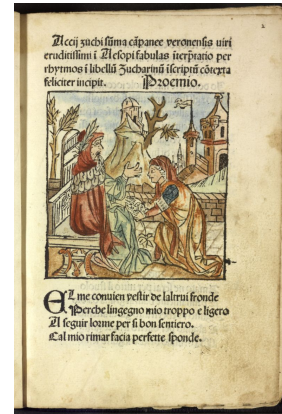 Accij zuchi sũma cãpanee veronensis viri
eruditissimi ĩ Aesopi fabulas ĩterp̃tatio per
rhytmos ĩ libellũ Zucharinũ ĩscriptũ cõtexta
feliciter incipit. Proemio.
EL me convien vestir de laltrui fronde
Perche lingegno mio troppo e ligero
A seguir lorme per si bon sentiero.
Cal mio rimar facia perfette sponde.